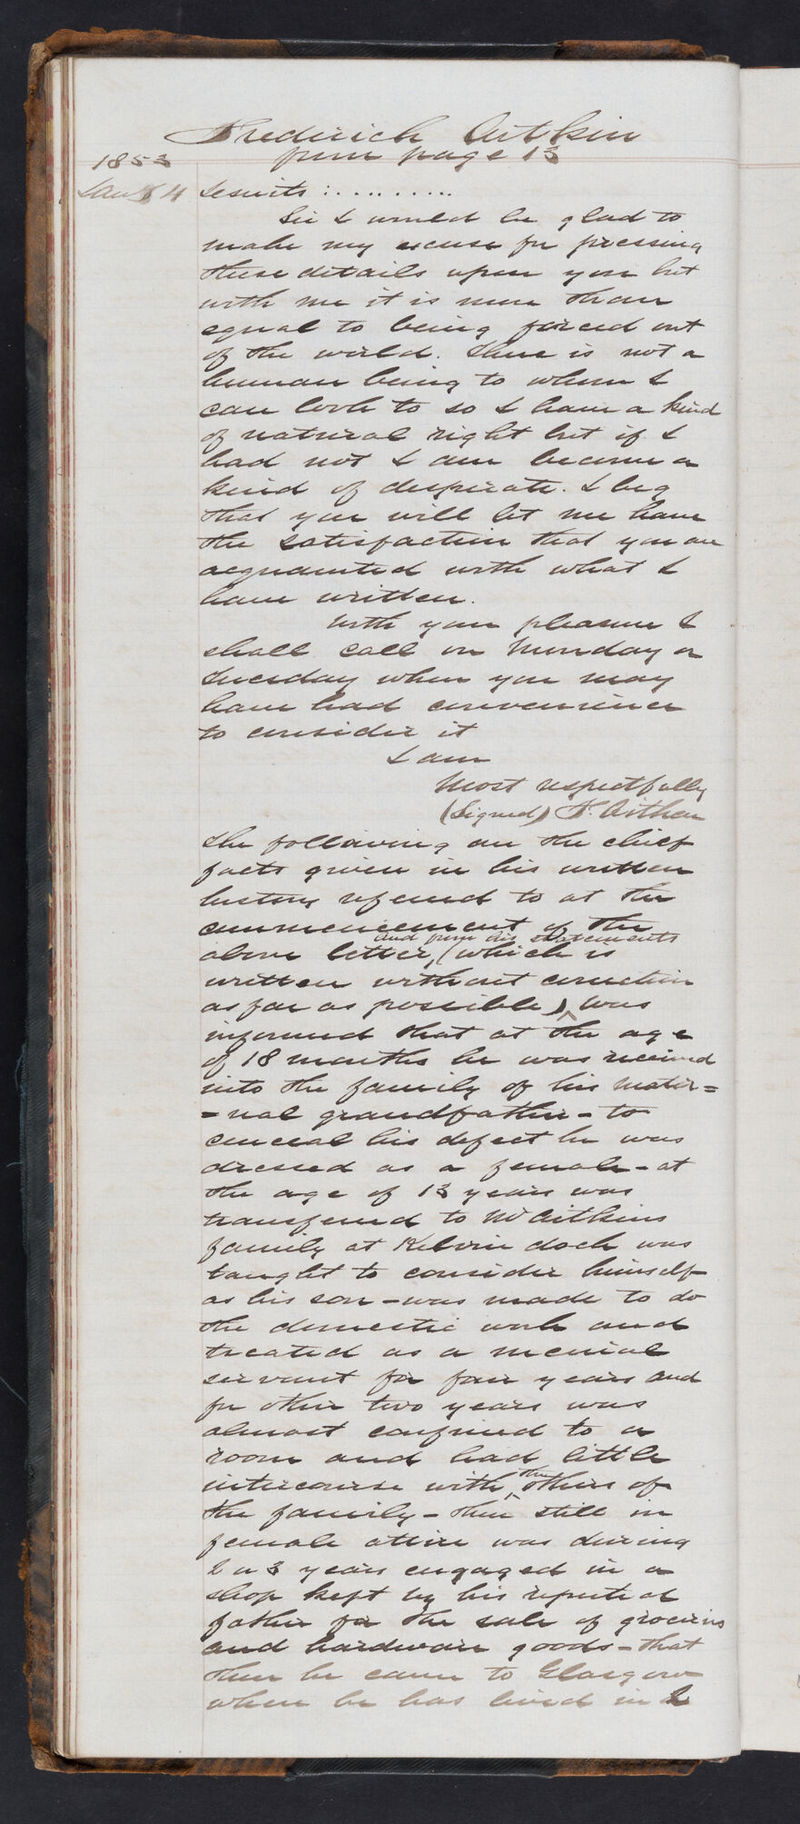 Frederick Aitkin
from page 13
1853
Jany 4 Jesuits : . . . . . . . . .
Sir I would be glad to
make my excuse for pressing
these details upon you but
with me it is more than
equal to being forced out
of the world. There is not a
human being to whom I
can look to so I have a kind
of natural right but if I
had not I am become a
kind of desperate. I beg
that you will let me have
the satisfaction that you are
acquainted with what I
have written.
With your pleasure I
shall call on Monday or
Tuesday when you may
have had convenience
to consider it
I am
Most respectfully
(Signed) F. Aitken
The following are the chief
facts given in his written
history referred to at the
commencement of the
and from his statements
above letter, (which is
written without correction
as far as possible) was
informed that at the age
of 18 months he was received
into the family of his mater=
=nal grandfather - to
conceal his defect he was
dressed as a female - at
the age of 13 years was
transferred to Mr Aitkins
family at Kelvin dock was
taught to consider himself
as his son - was made to do
the domestic work and
treated as a menial
servant for four years and
for other two years was
almost confined to a
room and had little
intercourse with the others of
the family - then still in
female attire was during
2 or 3 years engaged in a
shop kept by his reputed
father for the sale of groceries
and hardware goods - that
then he came to Glasgow
where he has lived in